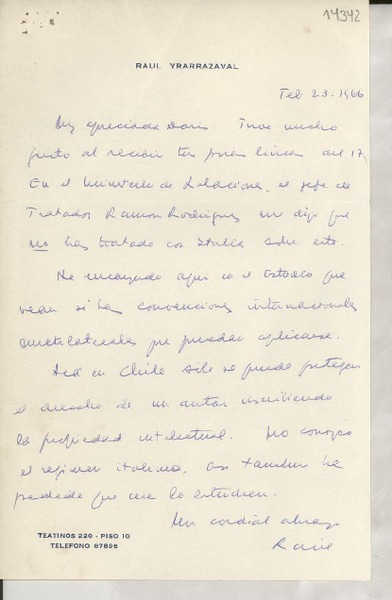 14342
RAUL YRARRAZAVAL
Feb 23-1966
Muy apreciada Doris. Tuve mucho
gusto al recibir tus pocas líneas del 17,
En el Ministerio de Relaciones, el jefe de
Tratados Ramon Rodriguez me dijo que
no hay tratado con Italia sobre esto.
He encargado aquí en el estudio que
vean si hay convenciones internacionales
multilaterales que puedan aplicarse.
Acá en Chile sólo se puede proteger
el derecho de un autor inscribiendo
la propiedad intelectual. No conozco
el regimen italiano, así tambien he
pedido que me lo estudien.
Un cordial abrazo
Raúl
TEATINOS 220 - PISO 10
TELEFONO 87896